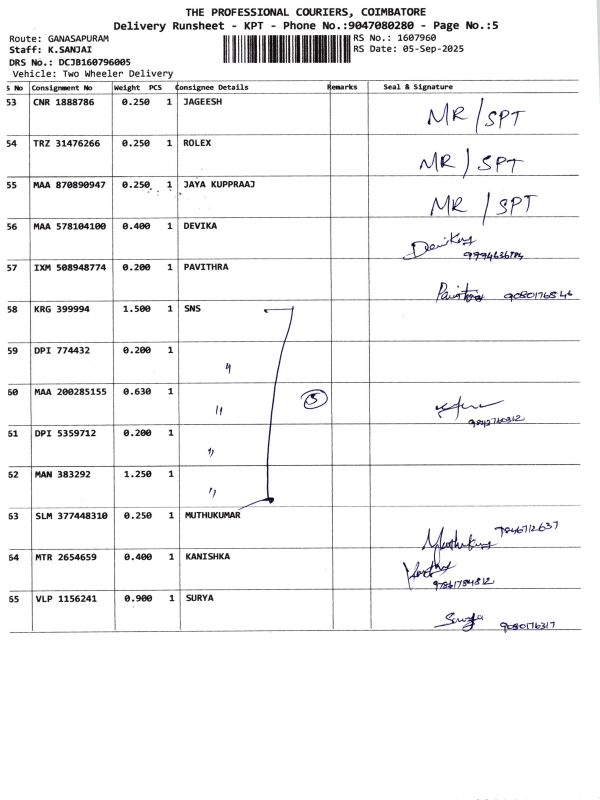 THE PROFESSIONAL COURIERS, COIMBATORE
Delivery Runsheet - KPT - Phone No.:9047080280 - Page No.:5
Route: GANASAPURAM RS No.: 1607960
Staff: K.SANJAI RS Date: 05-Sep-2025
DRS No.: DCJB160796005
Vehicle: Two Wheeler Delivery
S No Consignment No Weight PCS Consignee Details Remarks Seal & Signature
53 CNR 1888786 0.250 1 JAGEESH MR/SPT
54 TRZ 31476266 0.250 1 ROLEX MR/SPT
55 MAA 870890947 0.250 1 JAYA KUPPRAAJ MR/SPT
56 MAA 578104100 0.400 1 DEVIKA
57 IXM 508948774 0.200 1 PAVITHRA
58 KRG 399994 1.500 1 SNS
59 DPI 774432 0.200 1 "
60 MAA 200285155 0.630 1 " 5
61 DPI 5359712 0.200 1 "
62 MAN 383292 1.250 1 "
63 SLM 377448310 0.250 1 MUTHUKUMAR 7846712637
64 MTR 2654659 0.400 1 KANISHKA
65 VLP 1156241 0.900 1 SURYA Surya